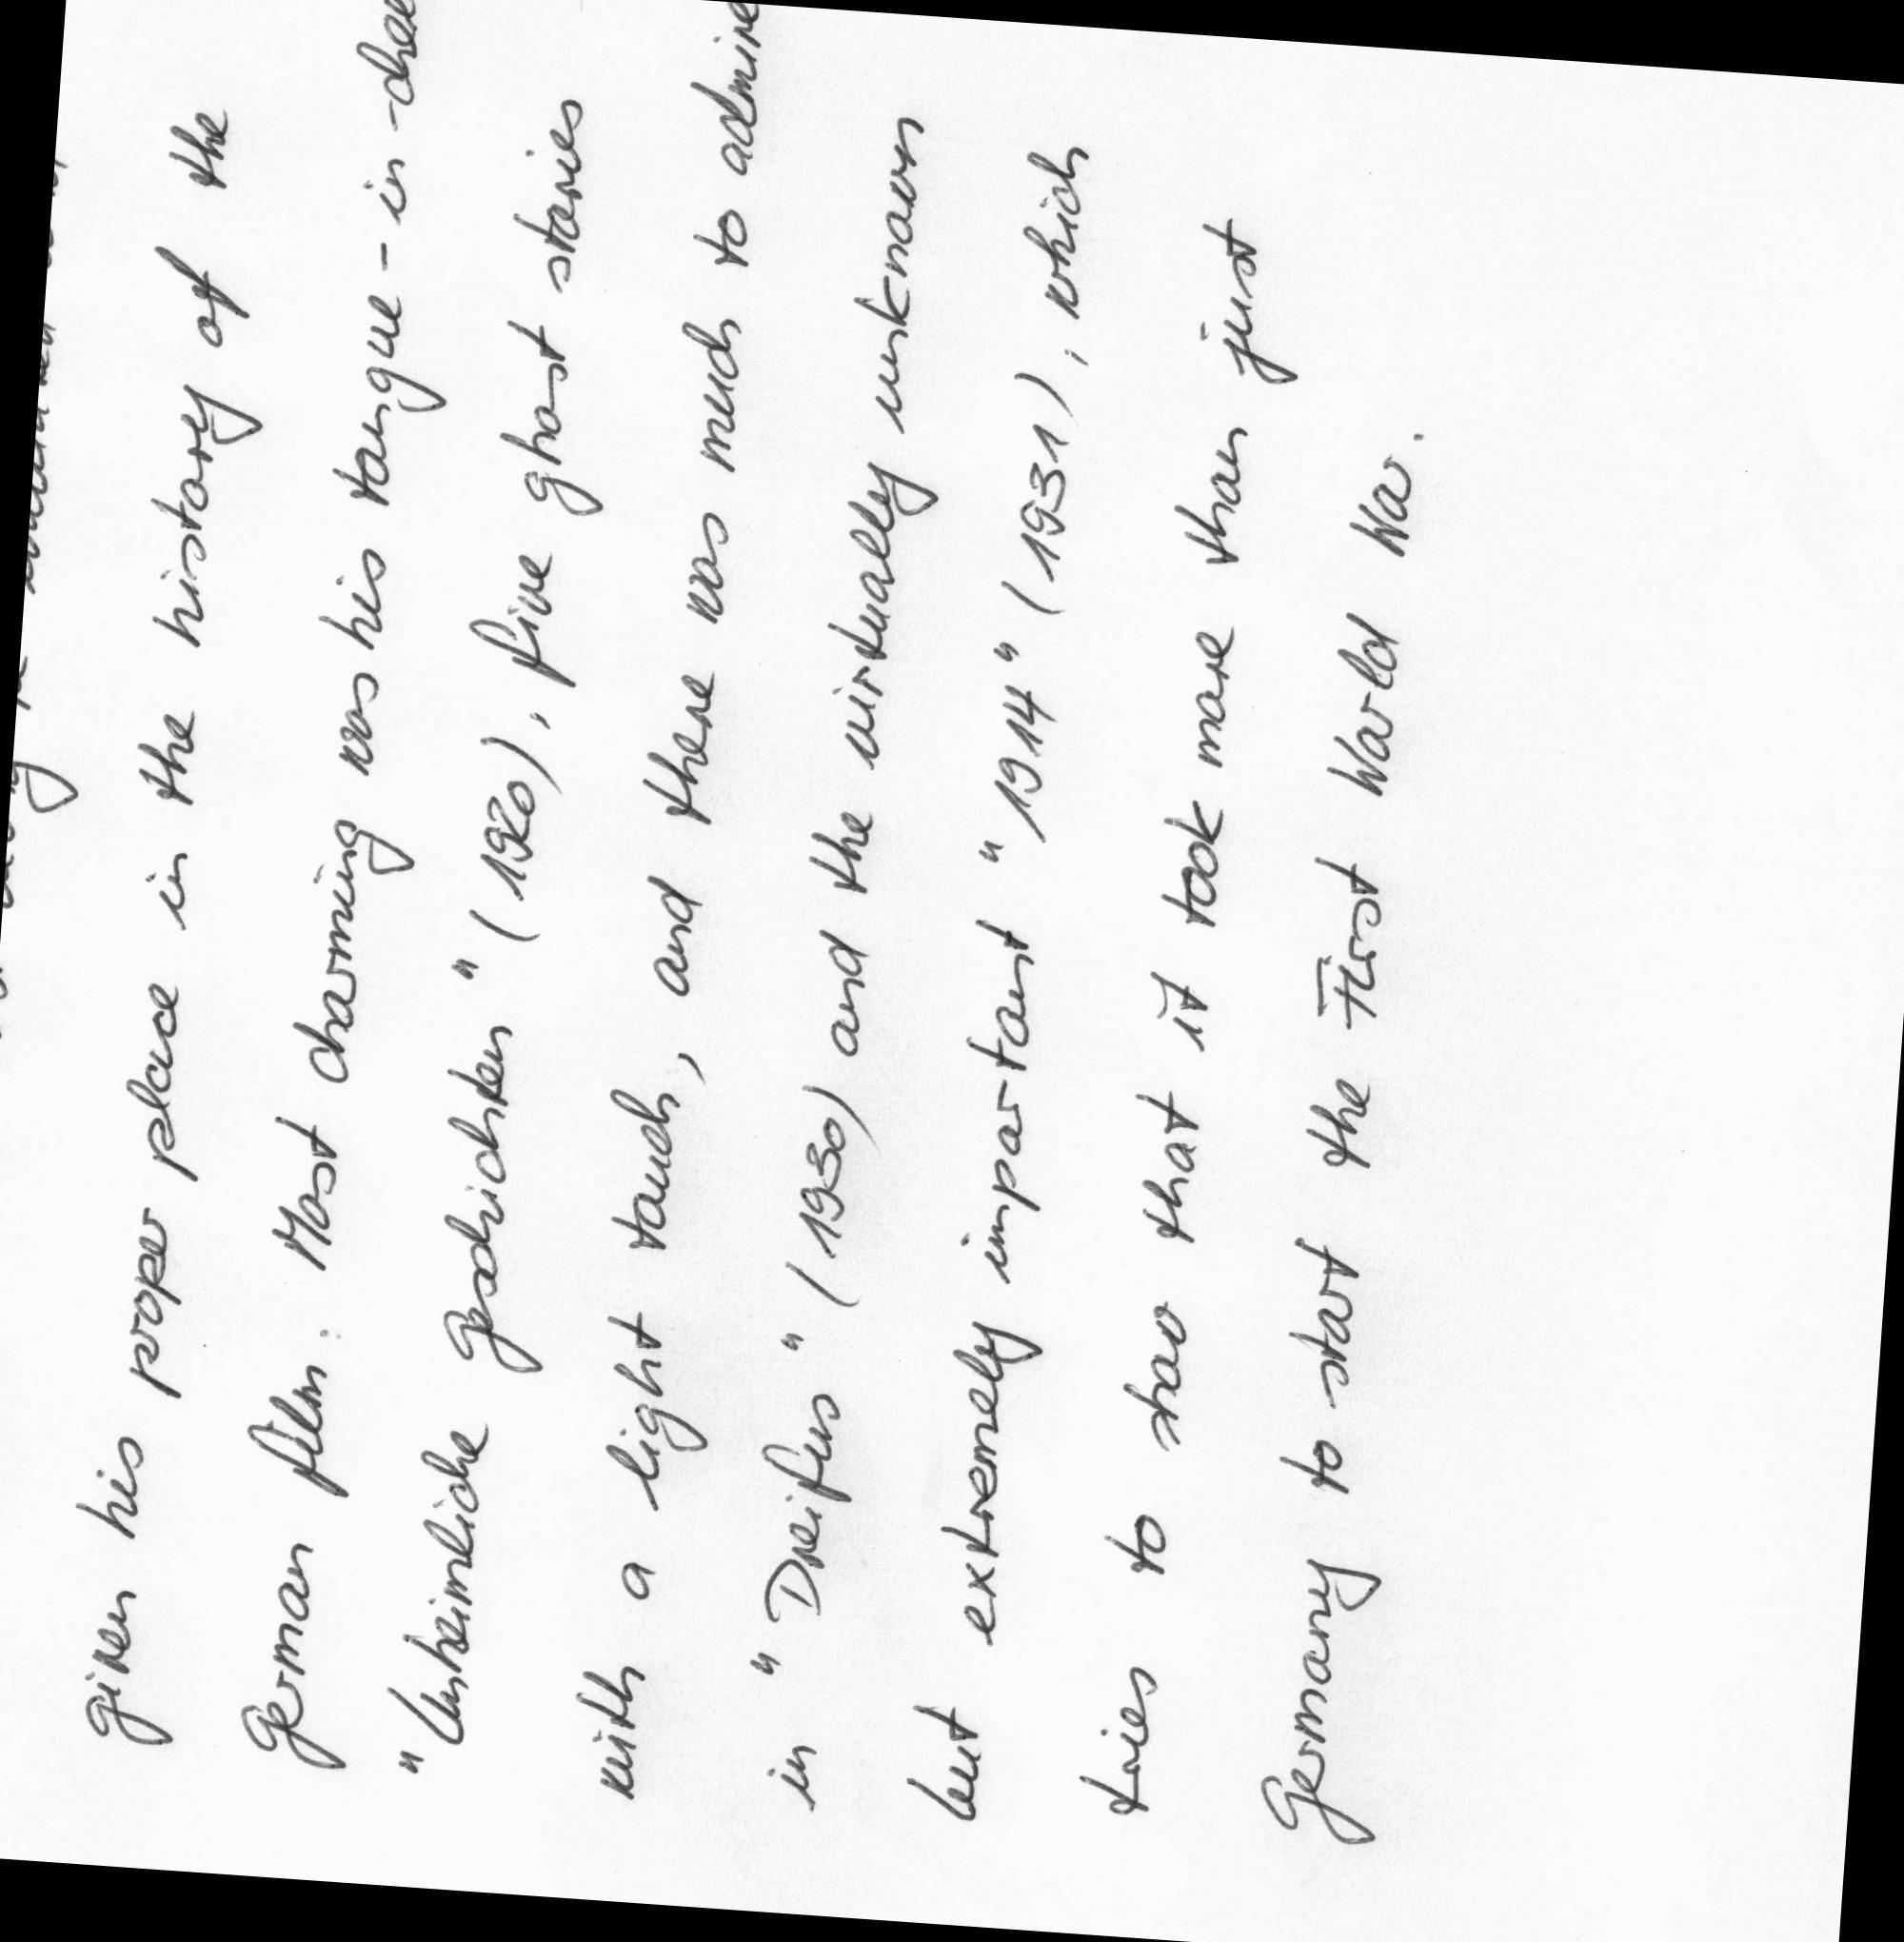 given his proper place in the history of the
German film. Most charming was his tongue-in-
"Unheimliche Geschichten" (1920), five ghost stories
with a light touch, and there was much to admire
in "Dreifus" (1930) and the virtually unknown
but extremely important "1914" (1931), which
tries to show that it took more than just
Germany to start the First World War.